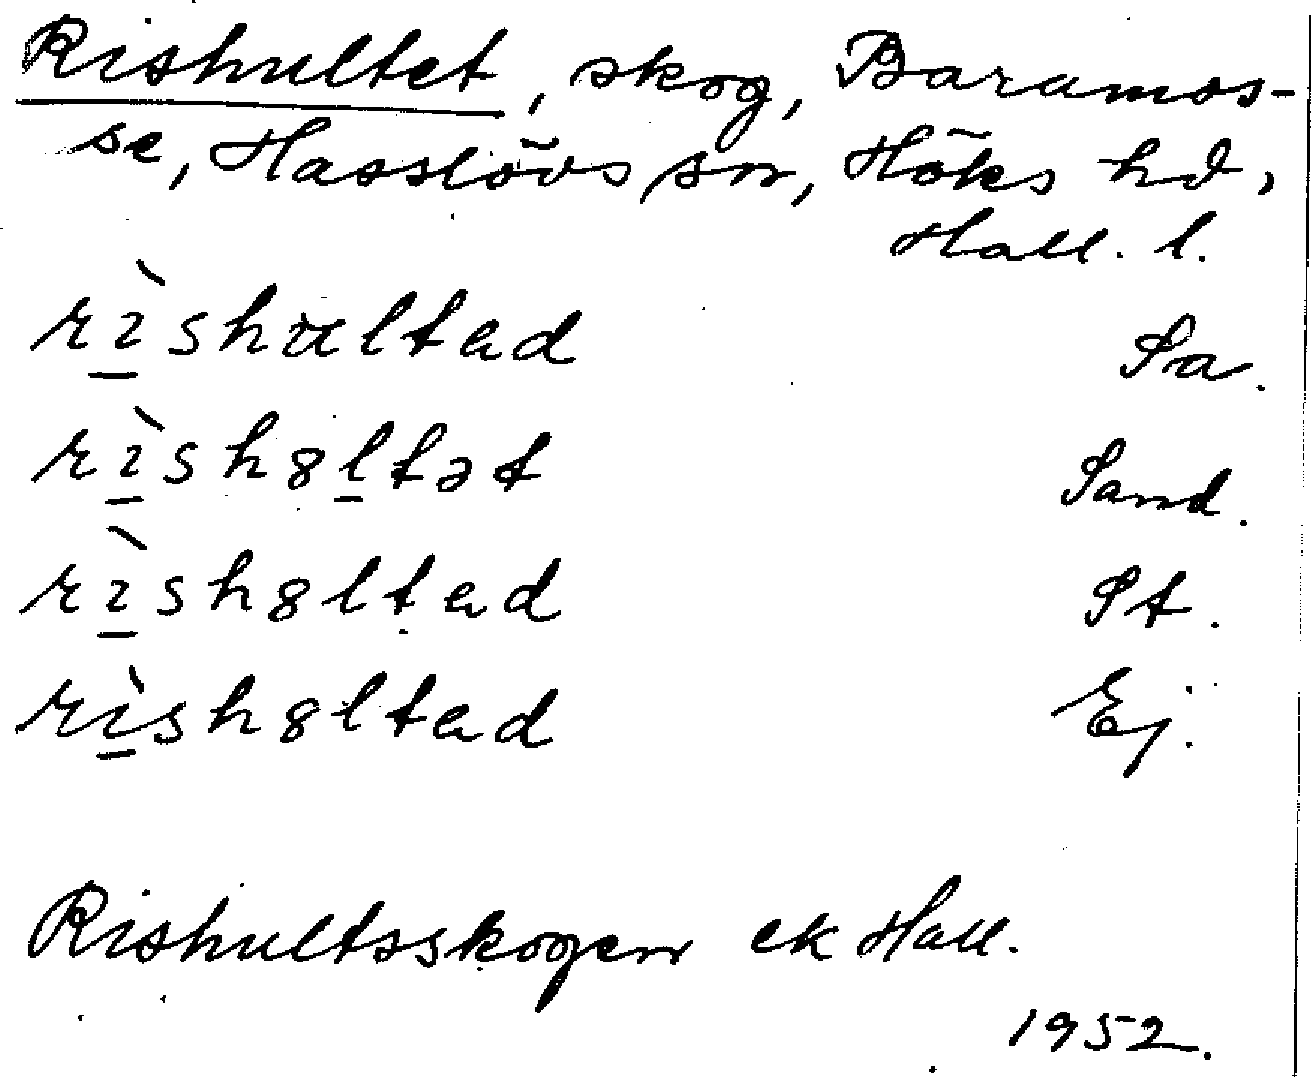 Rishultet, skog, Baramos-
se, Hasslövs sn, Höks hd,
Hall. l.
rìshultad Sa.
rìsh8ltət Sand.
rìsh8ltad St.
rìsh8ltad Ej.
Rishultsskogen ek Hall.
1952.